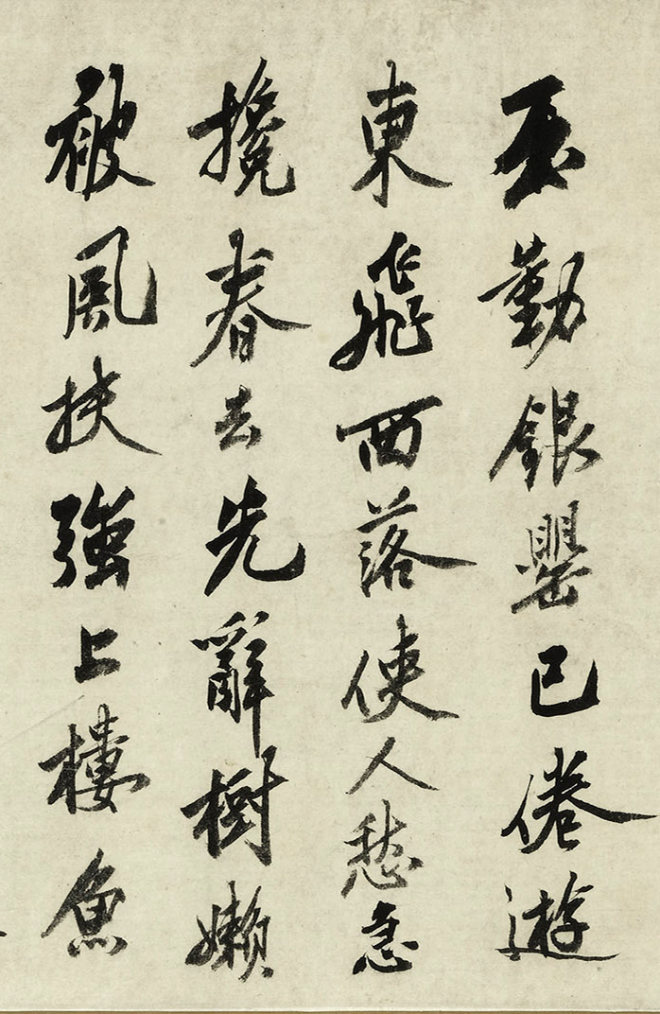 勤銀罌已倦遊
東飛西落使人愁急
攙春去先辭樹嬾
被風扶強上樓魚